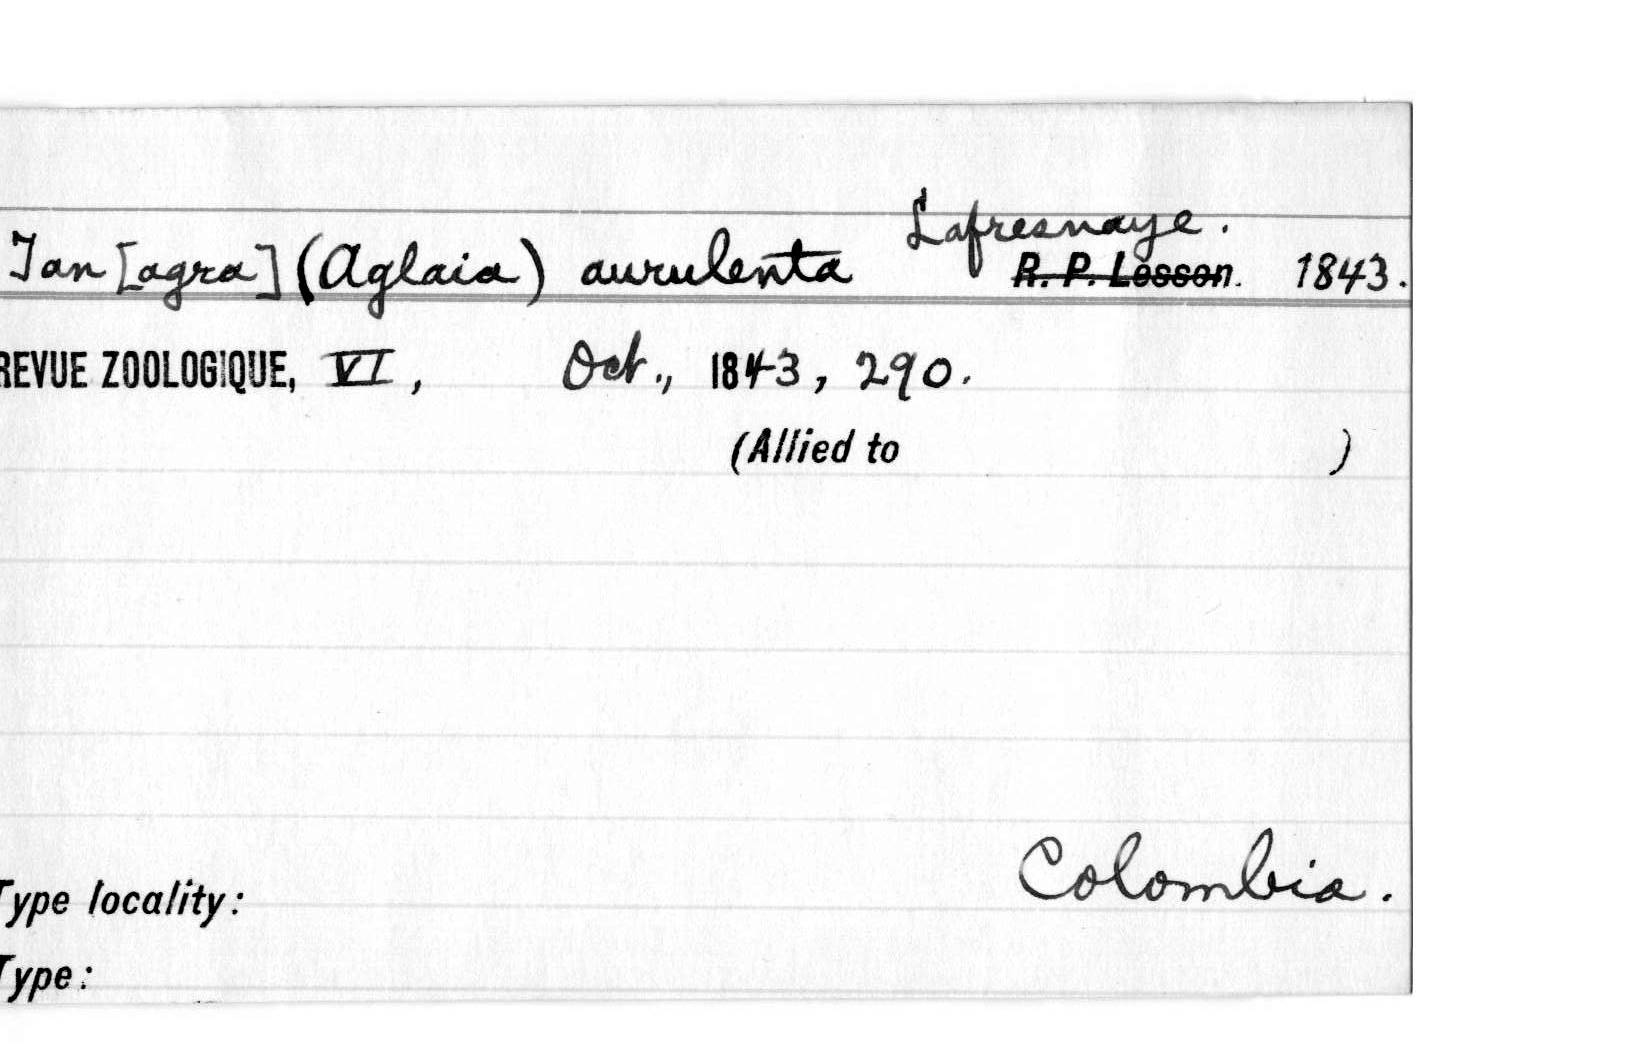 Lafresnaye.
Tan[agra] (Aglaia) aurulenta R. P. Lesson. 1843.
REVUE ZOOLOGIQUE, VI, Oct., 1843, 290.
(Allied to )
Colombia.
Type locality:
Type: